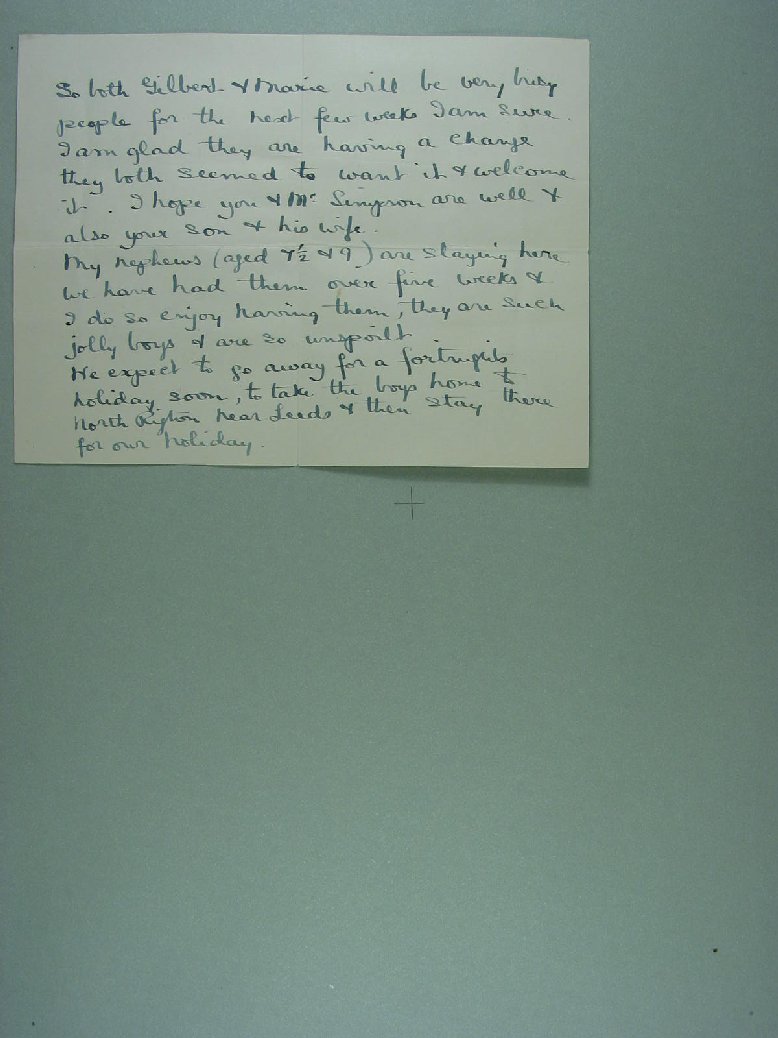 So both Gilbert & Marie will be very busy
people for the next few weeks I am sure.
I am glad they are having a change
they both seemed to want it & welcome
it. I hope you & Mr Simpson are well &
also your son & his wife.
My nephews (aged 7½ & 9) are staying here
we have had them over five weeks &
I do so enjoy having them, they are such
jolly boys & are so unspoilt.
We expect to go away for a fortnight's
holiday soon, to take the boys home to
North Rigton near Leeds & then stay there
for our holiday.